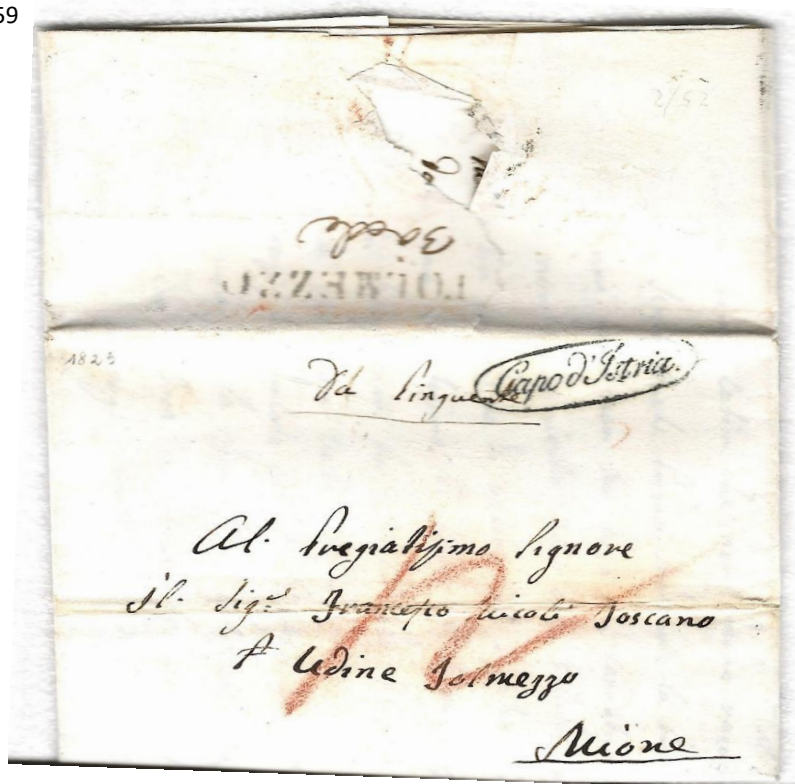 59
2/52
Baede
TOLMEZZO
1823
Da Pinguente Capo d'Istria.
Al. Pregiatissimo Signore
Il. Sigr. Francesco Nicoli Toscano
Udine Tolmezzo
Mione